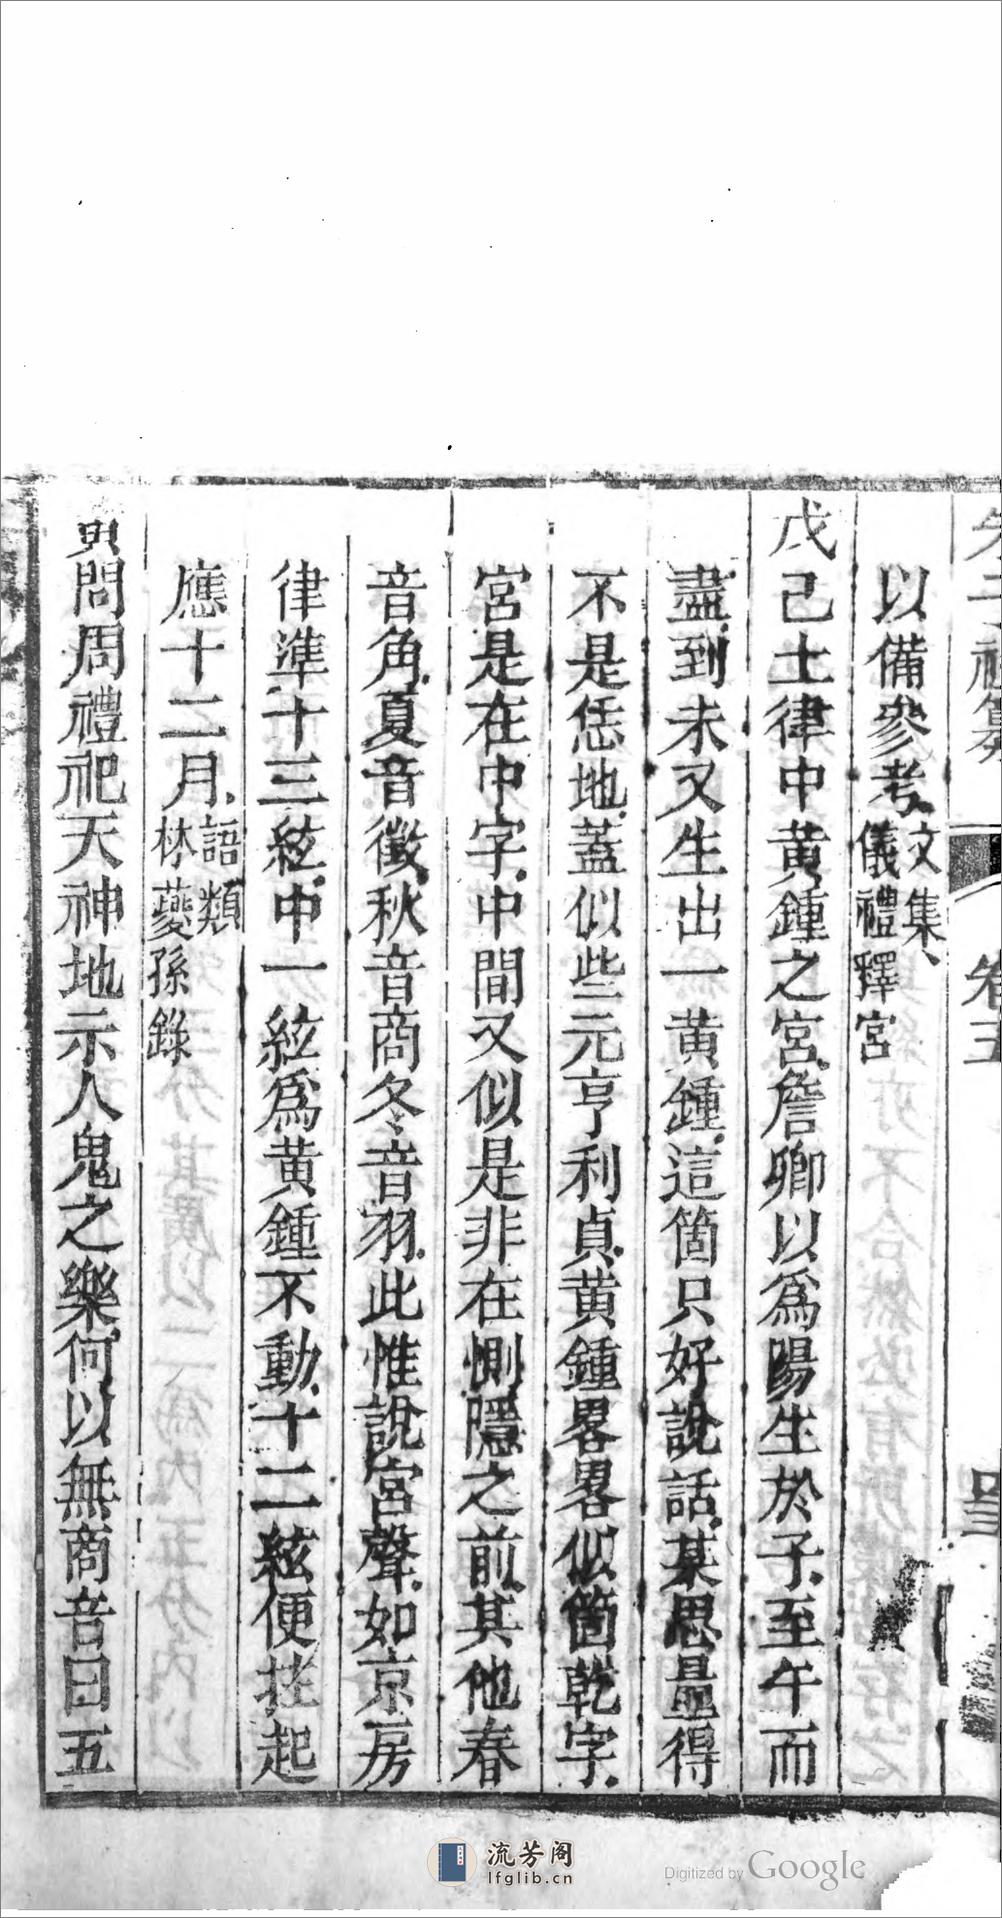 朱子禮纂 卷五 四三
以備參考文集、儀禮釋宮
戊己土律中黃鍾之宮詹卿以為陽生於子至午而
盡到未又生出一黃鍾這箇只好說話某思量得
不是恁地蓋似些元亨利貞黃鍾畧畧似箇乾字
宮是在中字中間又似是非在惻隱之前其他春
音角夏音徵秋音商冬音羽此惟說宮聲如京房
律準十三絃中一絃為黃鍾不動十二絃便拄起
應十二月語類林夔孫錄
問周禮祀天神地示人鬼之樂何以無商音曰五
流芳阁
lfglib.cn
Digitized by Google